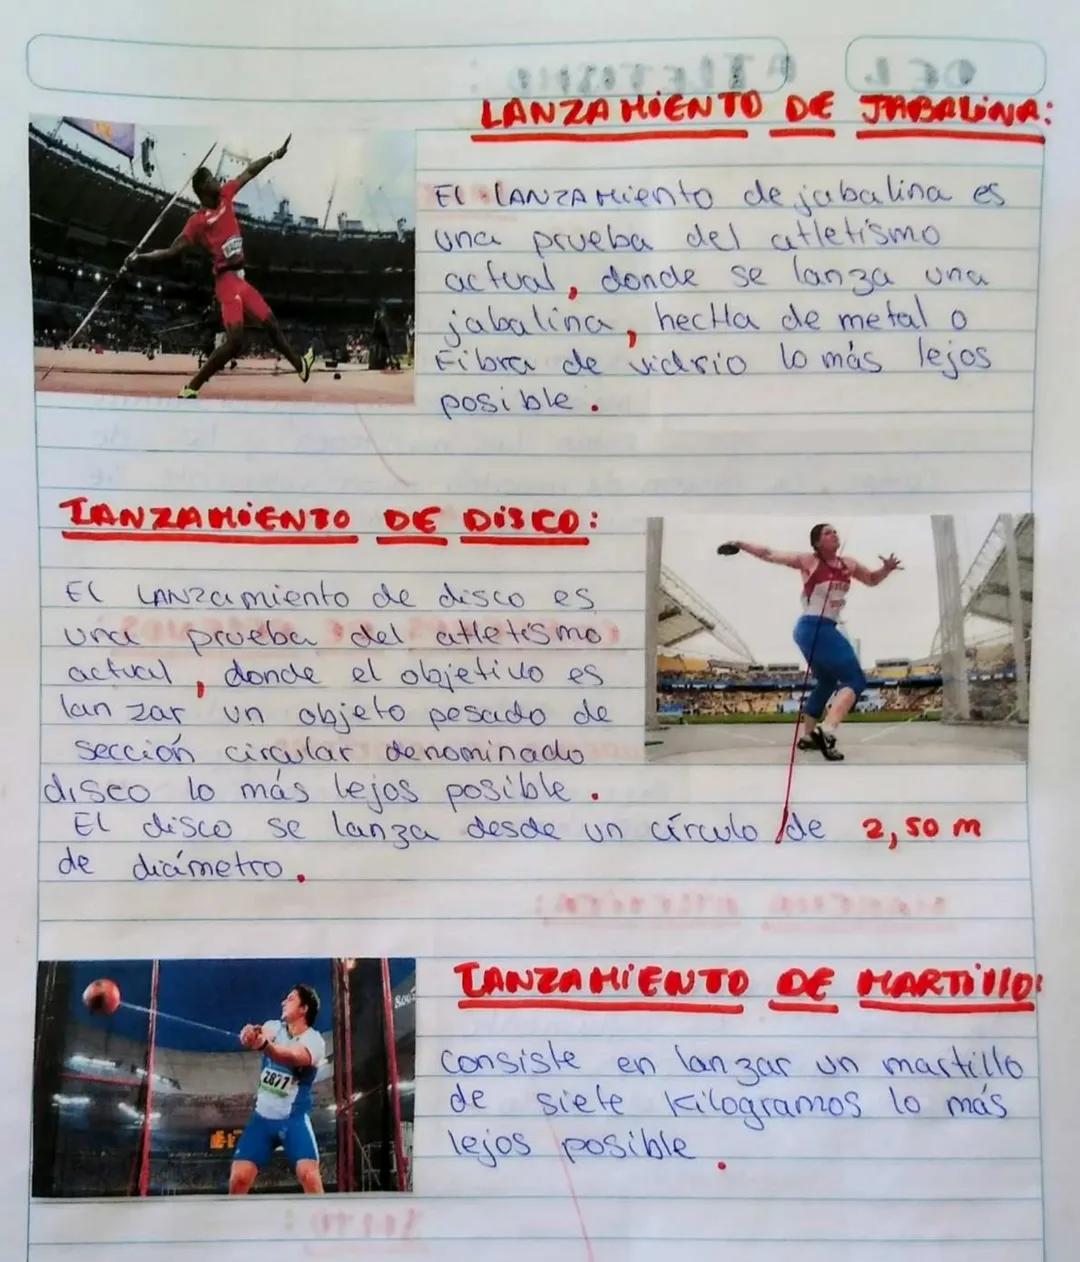 LANZAMIENTO DE JABALINA:
El LANZAMIENTO de jabalina es
una prueba del atletismo
actual, donde se lanza una
jabalina, hecHa de metal o
Fibra de vidrio lo más lejos
posible.
LANZAMIENTO DE DISCO:
El LANZamiento de disco es
una prueba del atletismo
actual, donde el objetivo es
lanzar un objeto pesado de
sección circular denominado
disco lo más lejos posible.
El disco se lanza desde un círculo de 2,50 m
de diámetro.
LANZAMIENTO DE MARTIllO:
consiste en lanzar un martillo
de siete Kilogramos lo más
lejos posible.
2877